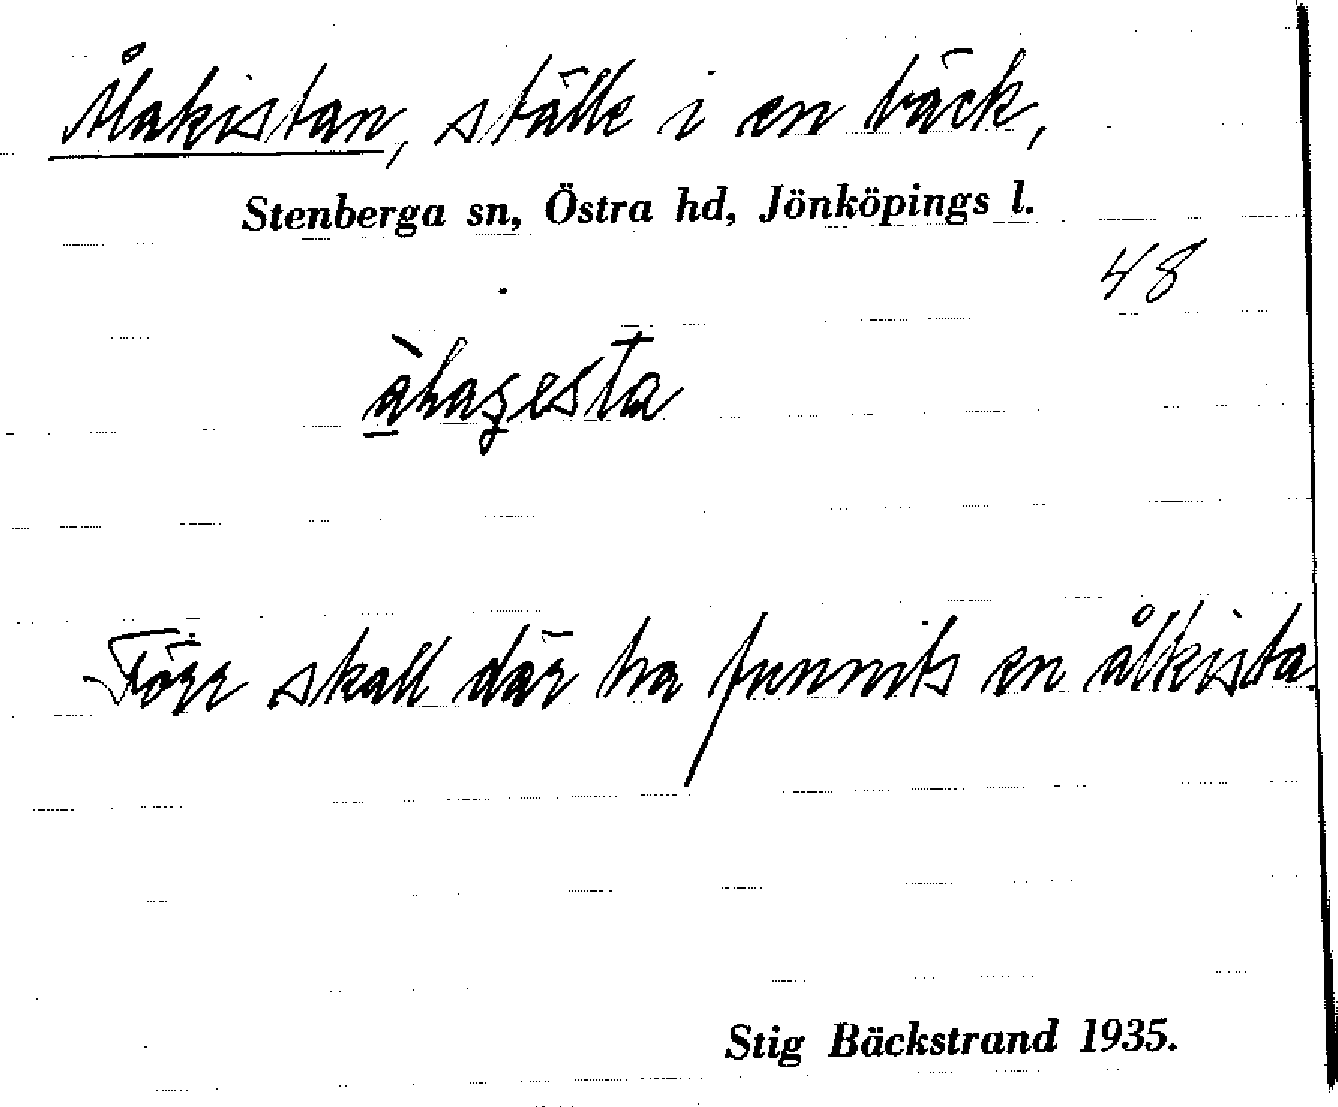 Ålakistan, ställe i en bäck,
Stenberga sn, Östra hd, Jönköpings l.
48
Förr skall där ha funnits en ålkista
Stig Bäckstrand 1935.